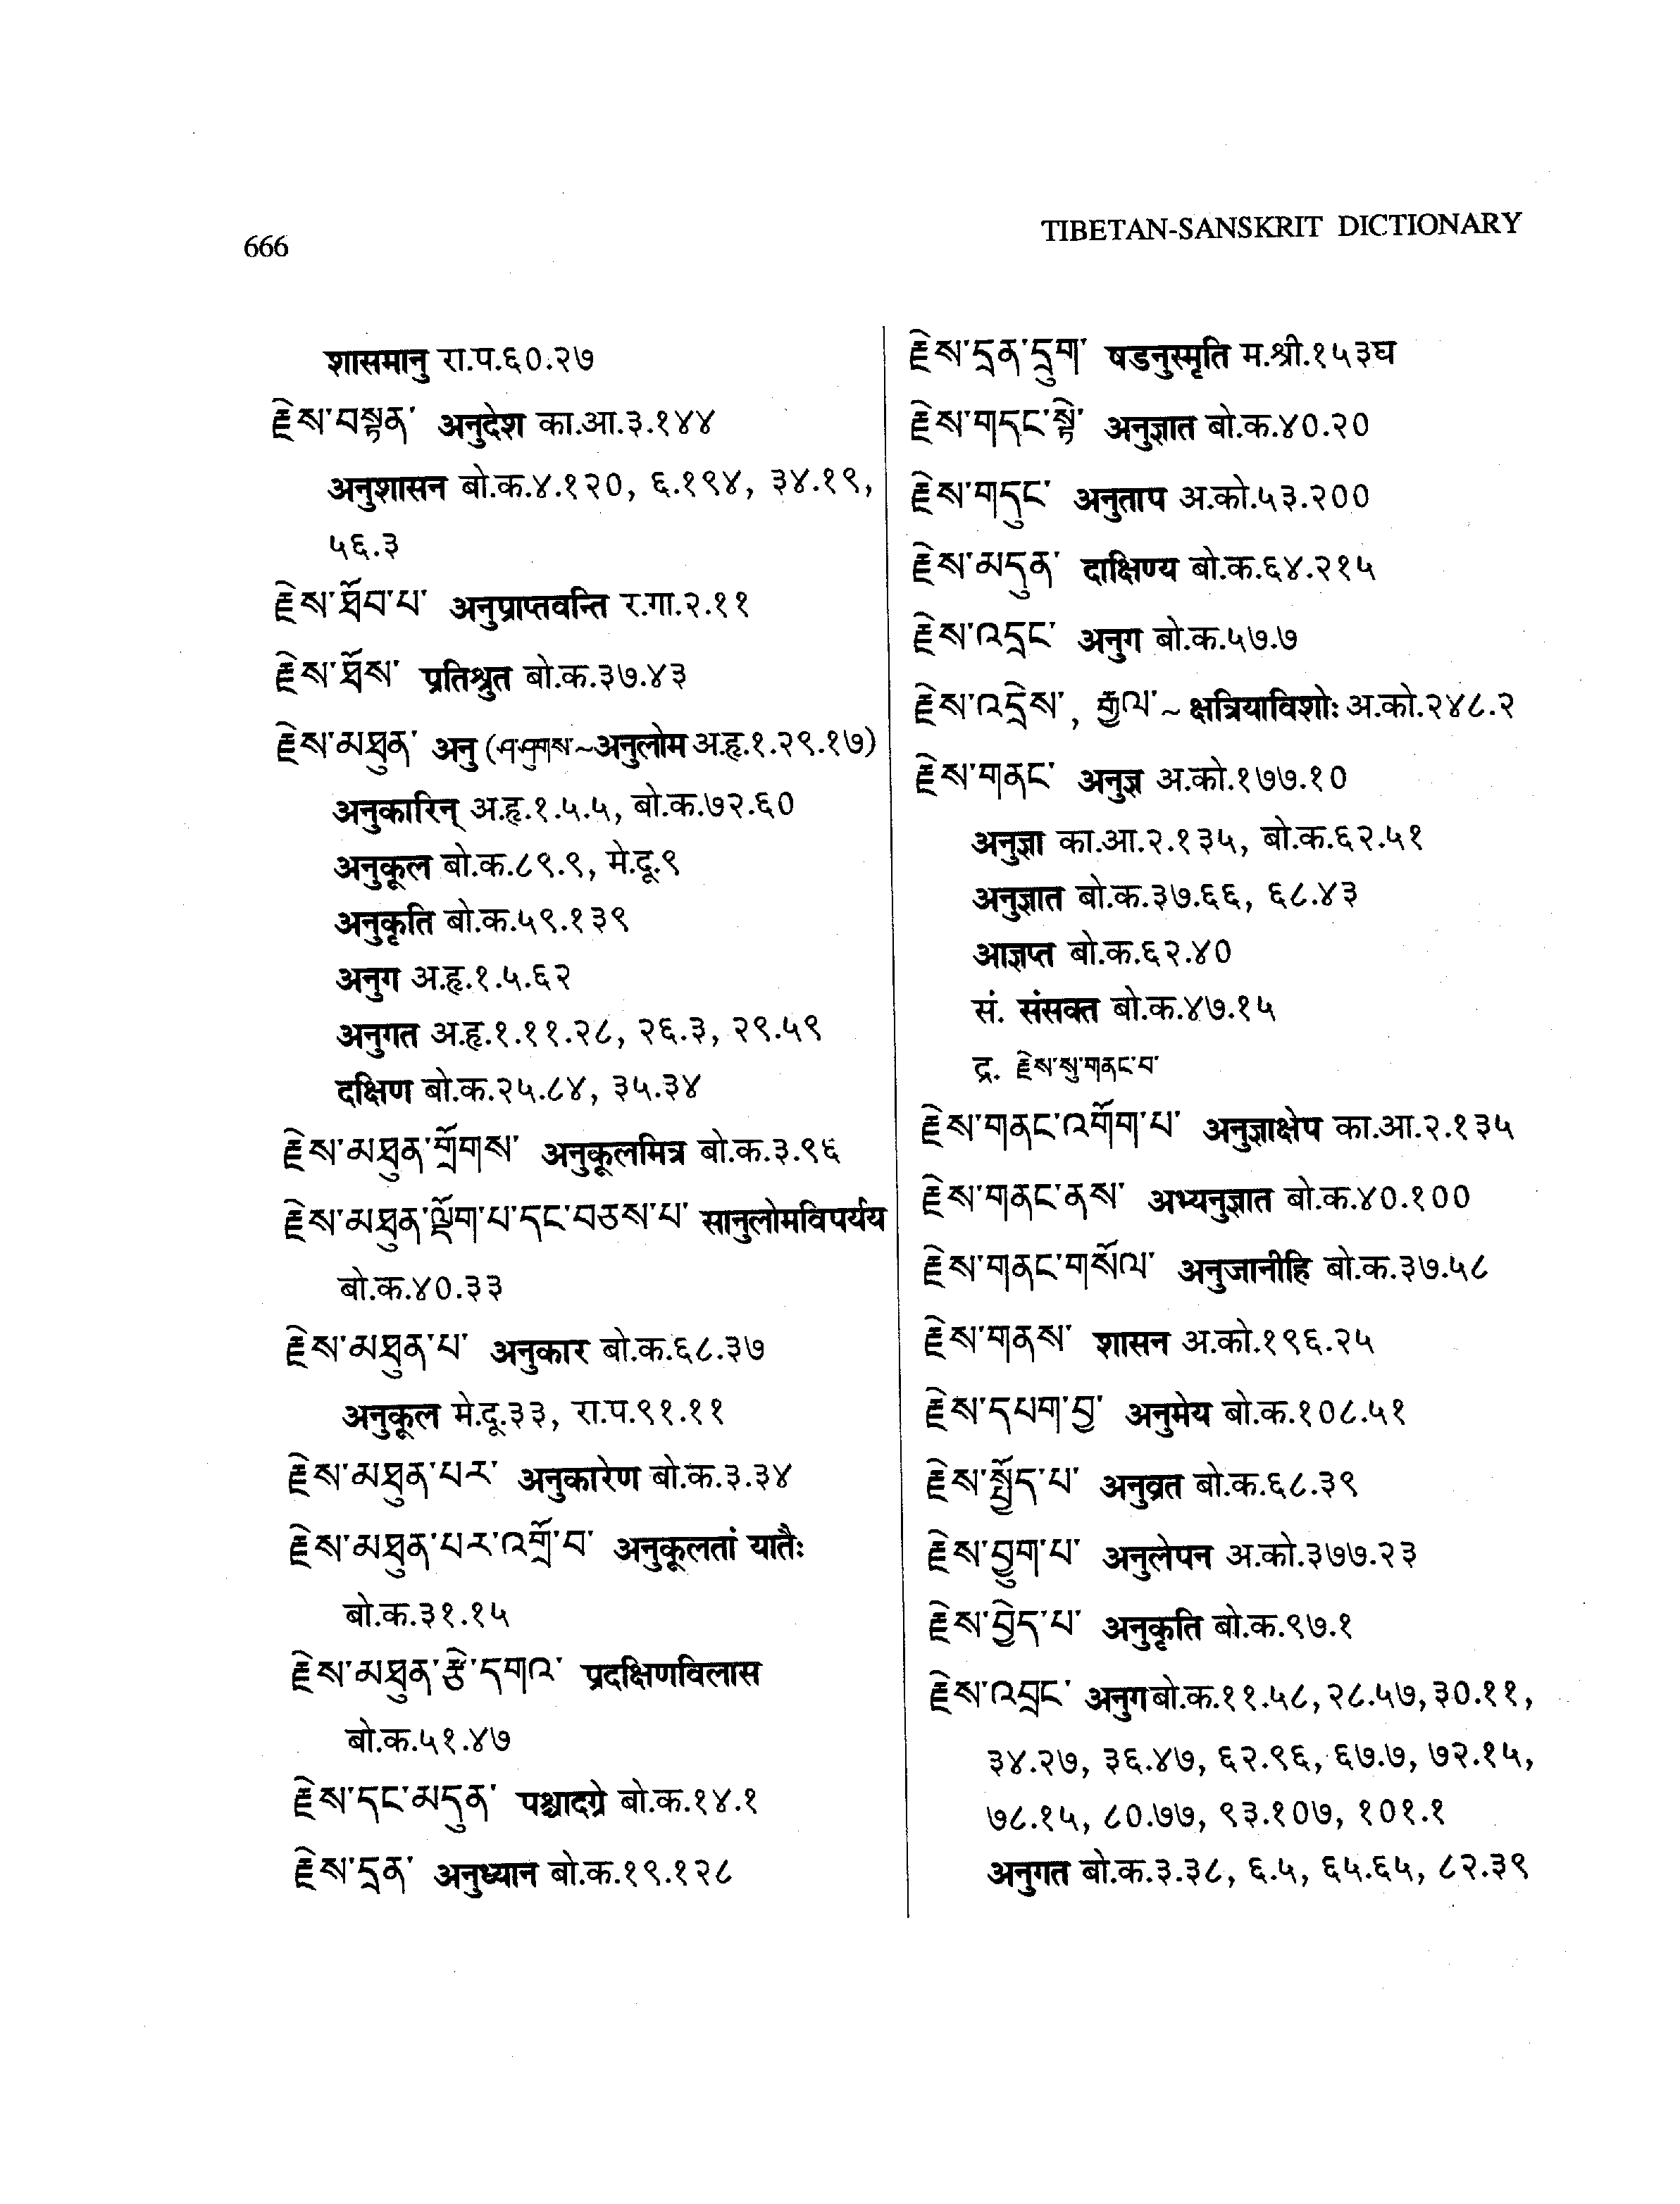 666
TIBETAN-SANSKRIT DICTIONARY
शासमानु रा.प.६०.२७
རྗེས་བསྟན་ अनुदेश का.आ.३.१४४
अनुशासन बो.क.४.१२०, ६.१९४, ३४.१९,
५६.३
རྗེས་ཐོབ་པ་ अनुप्राप्तवन्ति र.गा.२.११
རྗེས་ཐོས་ प्रतिश्रुत बो.क.३७.४३
རྗེས་མཐུན་ अनु (~अनुलोम अ.हृ.१.२९.१७)
अनुकारिन् अ.हृ.१.५.५, बो.क.७२.६०
अनुकूल बो.क.८९.९, मे.दू.९
अनुकृति बो.क.५९.१३९
अनुग अ.हृ.१.५.६२
अनुगत अ.हृ.१.११.२८, २६.३, २९.५९
दक्षिण बो.क.२५.८४, ३५.३४
རྗེས་མཐུན་གྲོགས་ अनुकूलमित्र बो.क.३.९६
རྗེས་མཐུན་ལྡོག་པ་དང་བཅས་པ་ सानुलोमविपर्यय
बो.क.४०.३३
རྗེས་མཐུན་པ་ अनुकार बो.क.६८.३७
अनुकूल मे.दू.३३, रा.प.९१.११
རྗེས་མཐུན་པར་ अनुकारेण बो.क.३.३४
རྗེས་མཐུན་པར་འགྲོ་བ་ अनुकूलतां यातैः
बो.क.३१.१५
རྗེས་མཐུན་རྩེ་དགའ་ प्रदक्षिणविलास
बो.क.५१.४७
རྗེས་དང་མདུན་ पश्चादग्रे बो.क.१४.१
རྗེས་དྲན་ अनुध्यान बो.क.१९.१२८
རྗེས་དྲན་དྲུག་ षडनुस्मृति म.श्री.१५३घ
རྗེས་གདང་སྟེ་ अनुज्ञात बो.क.४०.२०
རྗེས་གདུང་ अनुताप अ.को.५३.२००
རྗེས་མདུན་ दाक्षिण्य बो.क.६४.२१५
རྗེས་འདྲང་ अनुग बो.क.५७.७
རྗེས་འདྲེས་, རྒྱལ་~ क्षत्रियाविशोः अ.को.२४८.२
རྗེས་གནང་ अनुज्ञ अ.को.१७७.१०
अनुज्ञा का.आ.२.१३५, बो.क.६२.५१
अनुज्ञात बो.क.३७.६६, ६८.४३
आज्ञप्त बो.क.६२.४०
सं. संसक्त बो.क.४७.१५
द्र. རྗེས་སུ་གནང་བ་
རྗེས་གནང་འགོག་པ་ अनुज्ञाक्षेप का.आ.२.१३५
རྗེས་གནང་ནས་ अभ्यनुज्ञात बो.क.४०.१००
རྗེས་གནང་གསོལ་ अनुजानीहि बो.क.३७.५८
རྗེས་གནས་ शासन अ.को.१९६.२५
རྗེས་དཔག་བྱ་ अनुमेय बो.क.१०८.५१
རྗེས་སྤྱོད་པ་ अनुव्रत बो.क.६८.३९
རྗེས་བྱུག་པ་ अनुलेपन अ.को.३७७.२३
རྗེས་བྱེད་པ་ अनुकृति बो.क.९७.१
རྗེས་འབྲང་ अनुग बो.क.११.५८, २८.५७, ३०.११,
३४.२७, ३६.४७, ६२.९६, ६७.७, ७२.१५,
७८.१५, ८०.७७, ९३.१०७, १०१.१
अनुगत बो.क.३.३८, ६.५, ६५.६५, ८२.३९